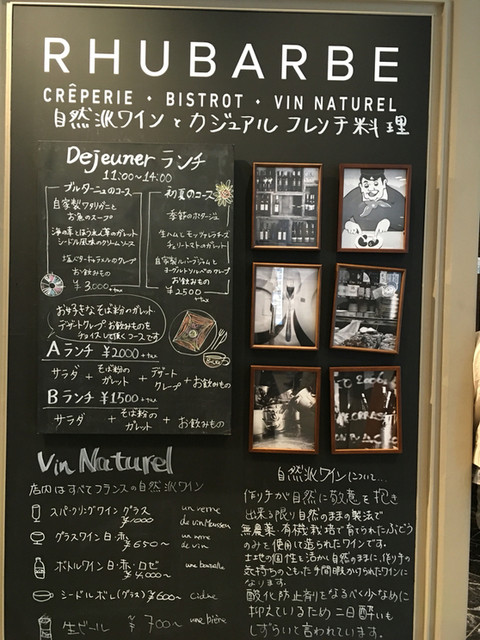 RHUBARBE
CRÊPERIE • BISTROT • VIN NATUREL
自然派ワインとカジュアル フレンチ料理
Dejeuner ランチ
11:00~14:00
ブルターニュのコース
自家製ワタリガニと
お魚のスープ
海の幸とほうれん草のガレット
シードル風味のクリームソース
塩バターキャラメルのクレープ
お飲みもの
¥3,000+tax
初夏のコース
季節のポタージュ
生ハムとモッツァレラチーズ
チェリートマトのガレット
自家製ルバーブジャムと
ヨーグルトソルベのクレープ
お飲みもの
¥2500+tax
お好きなそば粉のガレット
デザートクレープ お飲みものを
チョイスして頂くコースです
Aランチ ¥2000+tax
サラダ + そば粉のガレット + デザートクレープ + お飲みもの
Bランチ ¥1500+tax
サラダ + そば粉のガレット + お飲みもの
Vin Naturel
店内はすべてフランスの自然派ワイン
スパークリングワイン グラス
¥1000
un verre
de vin Mousseux
グラスワイン 白・赤
¥650~
un verre
de vin
ボトルワイン 白・赤・ロゼ
¥4,000~
une bouteille
シードルボレ(グラス) ¥600~ cidre
生ビール ¥700~ une bière
自然派ワインについて...
作り手が自然に敬意を抱き
出来る限り自然のままの製法で
無農薬・有機栽培で育てられたぶどう
のみを使用して造られたワインです。
土地の個性を活かし自然のままに、作り手の
気持ちのこもった手間暇かけられたワインに
なります。
酸化防止剤をなるべく少なめに
抑えているため二日酔いも
しずらいと言われています。